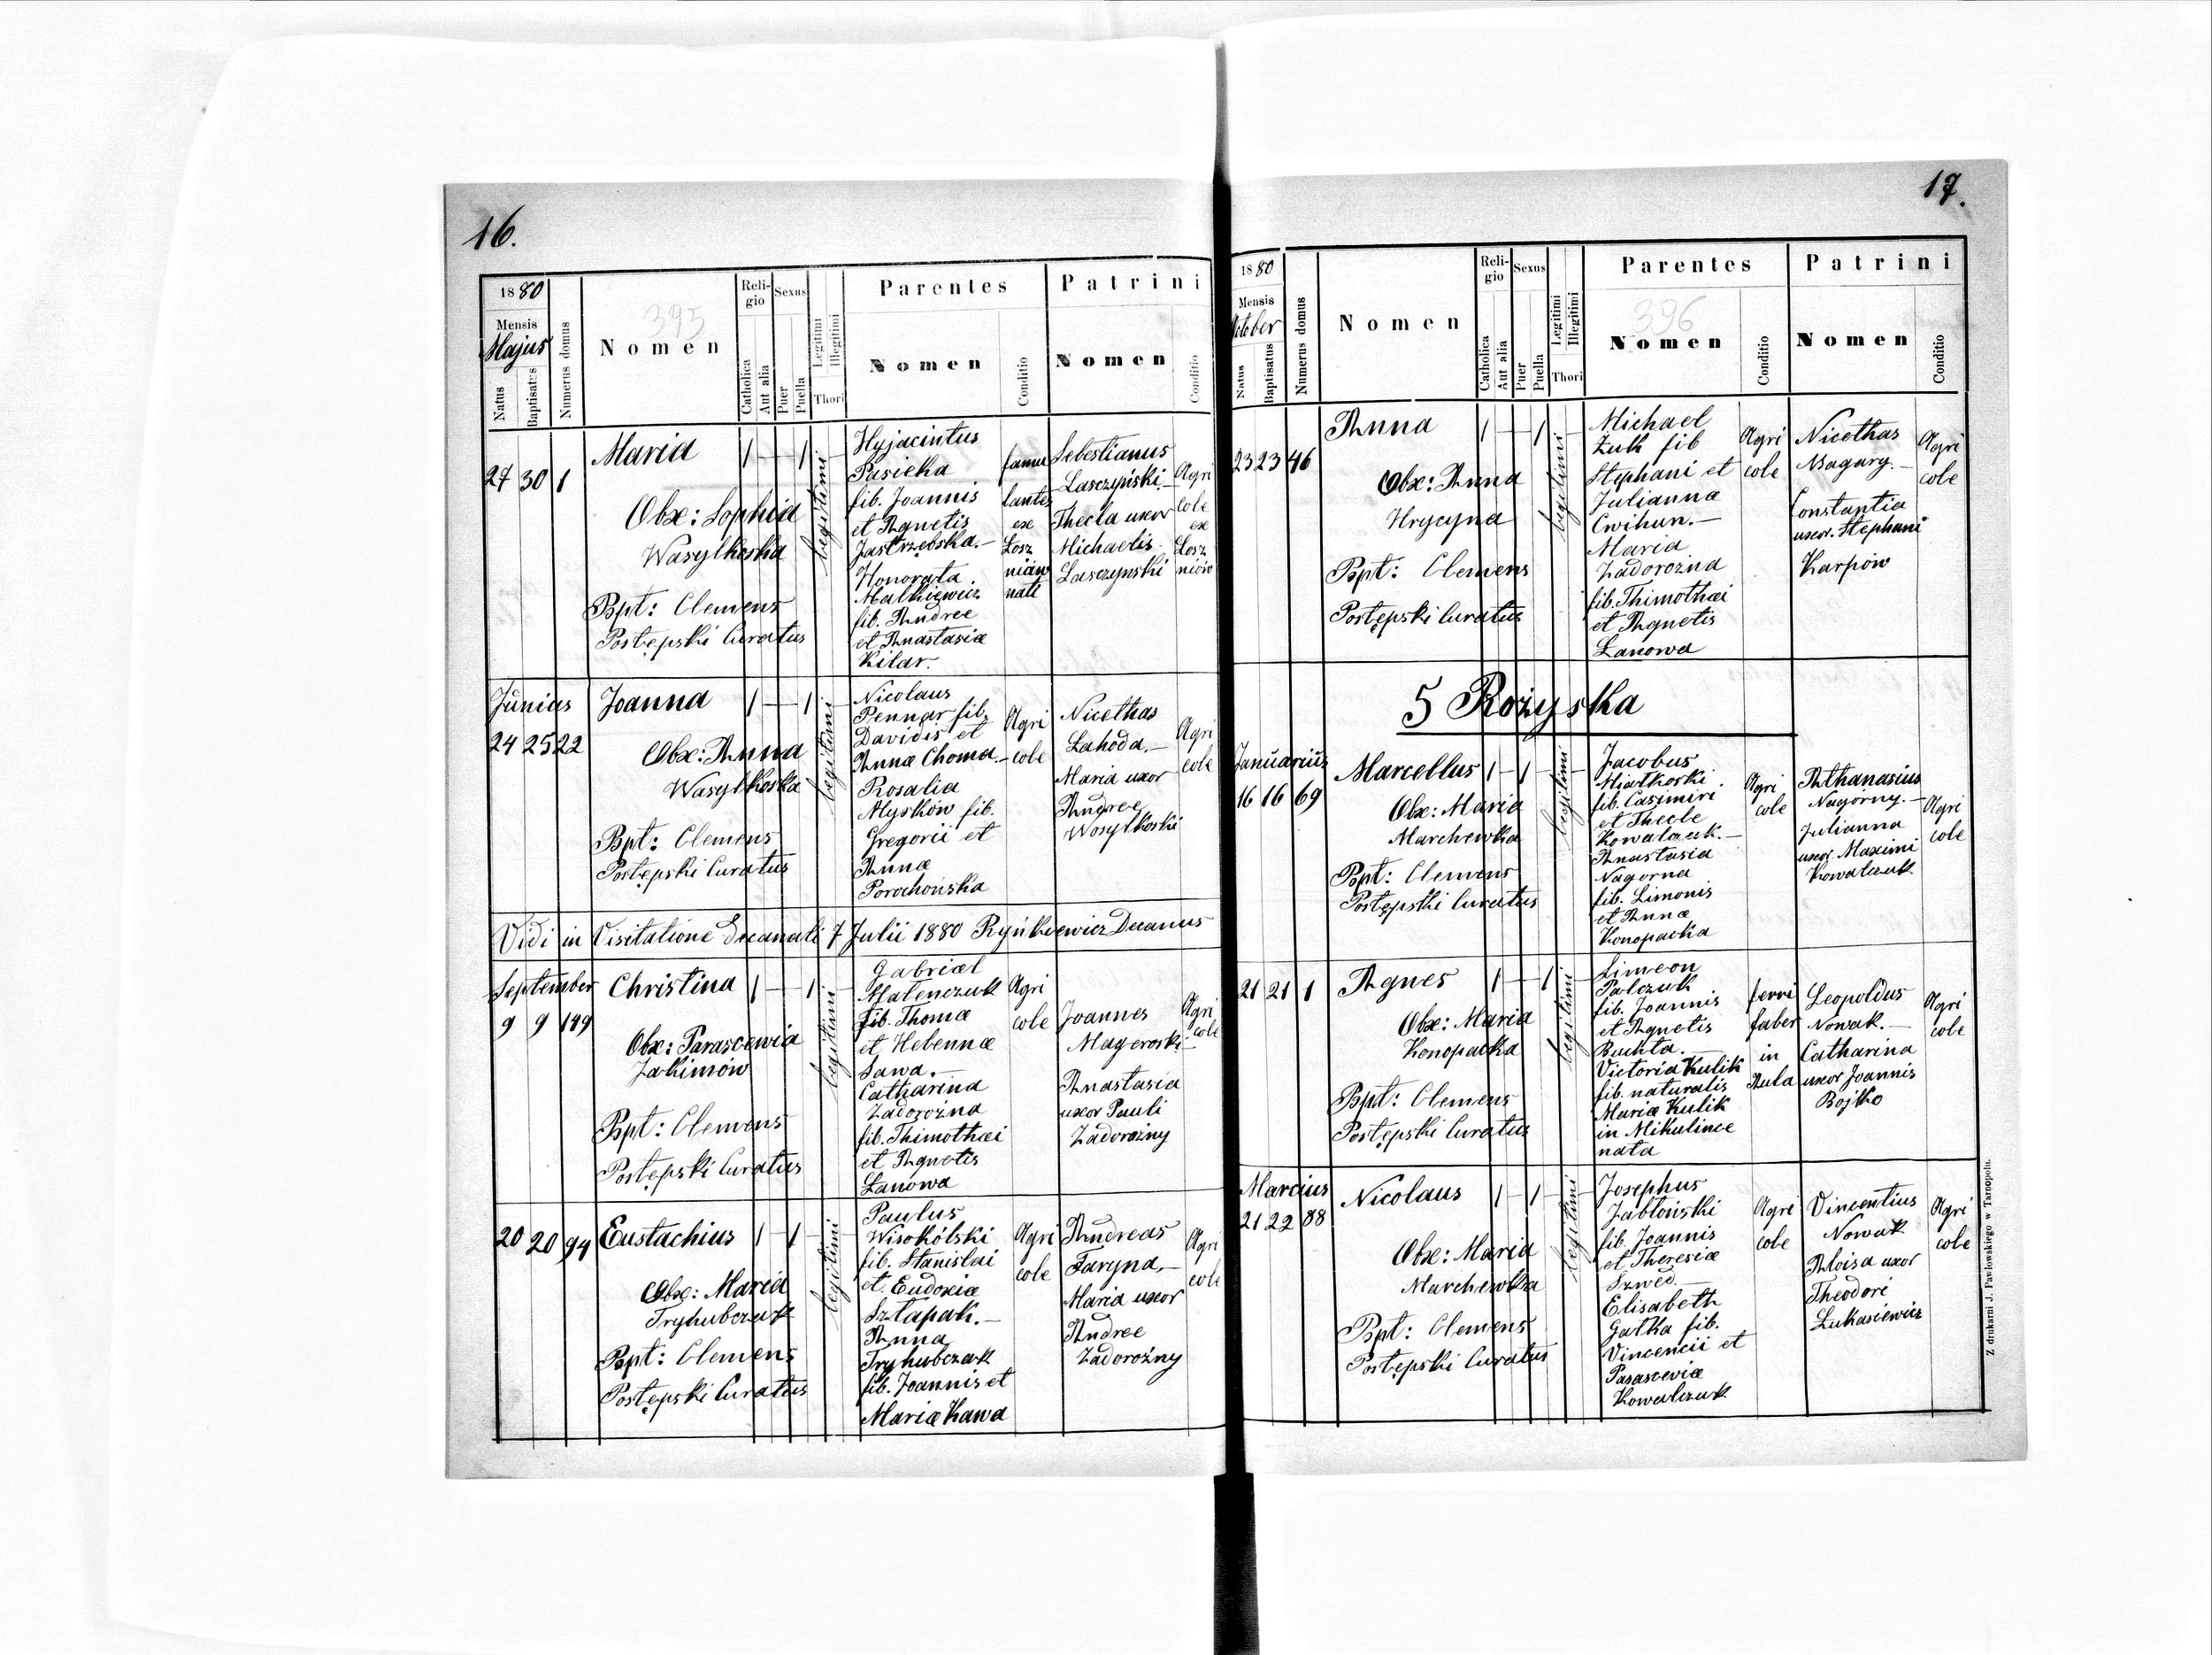 16.
1880
Mensis
Majus
Natus
Baptisatus
Numerus domus
395
Nomen
Religio
Catholica
Aut alia
Sexus
Puer
Puella
Legitimi
Illegitimi
Thori
Parentes
Nomen
Conditio
Patrini
Nomen
Conditio
27 30 1
Maria
Obx: Sophia
Wasylkoska
Bpt: Clemens
Postępski Curatus
legitimi
Hyjacintus
Pasieka
fib. Joannis
et Agnetis
Jastrzębska.—
Honorata
Malkiewicz
fib. Andree
et Anastasiæ
Kilar.
famu
lantes
ex
Losz
niów
nati
Sebestianus
Lasczyński.—
Thecla uxor
Michaelis
Lasczynski
Agri
cole
ex
Losz
niów
Junius
24 25 22
Joanna
Obx: Anna
Wasylkoska
Bpt: Clemens
Postępski Curatus
legitimi
Nicolaus
Pennar fib.
Davidis et
Annæ Choma.—
Rosalia
Myskow fib.
Gregorii et
Annæ
Porochońska
Agri
cole
Nicethas
Lahoda.—
Maria uxor
Andree
Wosylkoski
Agri
cole
Vidi in Visitatione decanali 7 Julii 1880 Ryńkiewicz Decanus
September
9 9 149
Christina
Obx: Parascewia
Jakimów
Bpt: Clemens
Postępski Curatus
legitimi
Gabriel
Matenczuk
fib. Thomæ
et Helennæ
Sawa.—
Catharina
Zadorożna
fib. Thimothæi
et Agnetis
Łanowa
Agri
cole
Joannes
Mageroski—
Anastasia
uxor Pauli
Zadorożny
Agri
cole
20 20 94
Eustachius
Obx: Maria
Tryhubczuk
Bpt: Clemens
Postępski Curatus
legitimi
Paulus
Wisokólski
fib. Stanislai
et Eudoxiæ
Sztapak.—
Anna
Tryhubczak
fib. Joannis et
Mariæ Kawa
Agri
cole
Andreas
Faryna,—
Maria uxor
Andree
Zadorożny
Agri
cole
17.
1880
Mensis
October
Natus
Baptisatus
Numerus domus
Nomen
Religio
Catholica
Aut alia
Sexus
Puer
Puella
Legitimi
Illegitimi
Thori
Parentes
396
Nomen
Conditio
Patrini
Nomen
Conditio
23 23 46
Anna
Obx: Anna
Hrycyna
Bpt: Clemens
Postępski Curatus
legitimi
Michael
Zuk fib
Stephani et
Juliannæ
Cwihun.—
Maria
Zadorożna
fib. Thimothæi
et Agnetis
Łanowa
Agri
cole
Nicethas
Magary.—
Constantia
uxor. Stephani
Karpów
Agri
cole
5 Rożyska
Januarius
16 16 69
Marcellus
Obx: Maria
Marchewka
Bpt: Clemens
Postępski Curatus
legitimi
Jacobus
Miatkoski.
fib. Casimiri
et Thecle
Kowalczuk.—
Anastasia
Nagorna
fib. Simonis
et Annæ
Konopacka
Agri
cole
Athanasius
Nagorny.—
Julianna
uxor. Maximi
Kowalczuk
Agri
cole
21 21 1
Agnes
Obx: Maria
Konopacka
Bpt: Clemens
Postępski Curatus
legitimi
Simeon
Palczuk
fib. Joannis
et Agnetis
Buchta.—
Victoria Kulik
fib. naturalis
Mariæ Kulik
in Mikulince
nata
ferri
faber
in
Aula
Leopoldus
Nowak.—
Catharina
uxor Joannis
Bojko
Agri
cole
Marcius
21 22 88
Nicolaus
Obx: Maria
Marchewka
Bpt: Clemens
Postępski Curatus
legitimi
Josephus
Jabłoński
fib. Joannis
et Theresiæ
Szwed.—
Elisabeth
Gatka fib.
Vincencii et
Parasceviæ
Kowalczuk
Agri
cole
Vincentius
Nowak
Aloisa uxor
Theodori
Łukasiewicz
Agri
cole
Z drukarni J. Pawłowskiego w Tarnopolu.